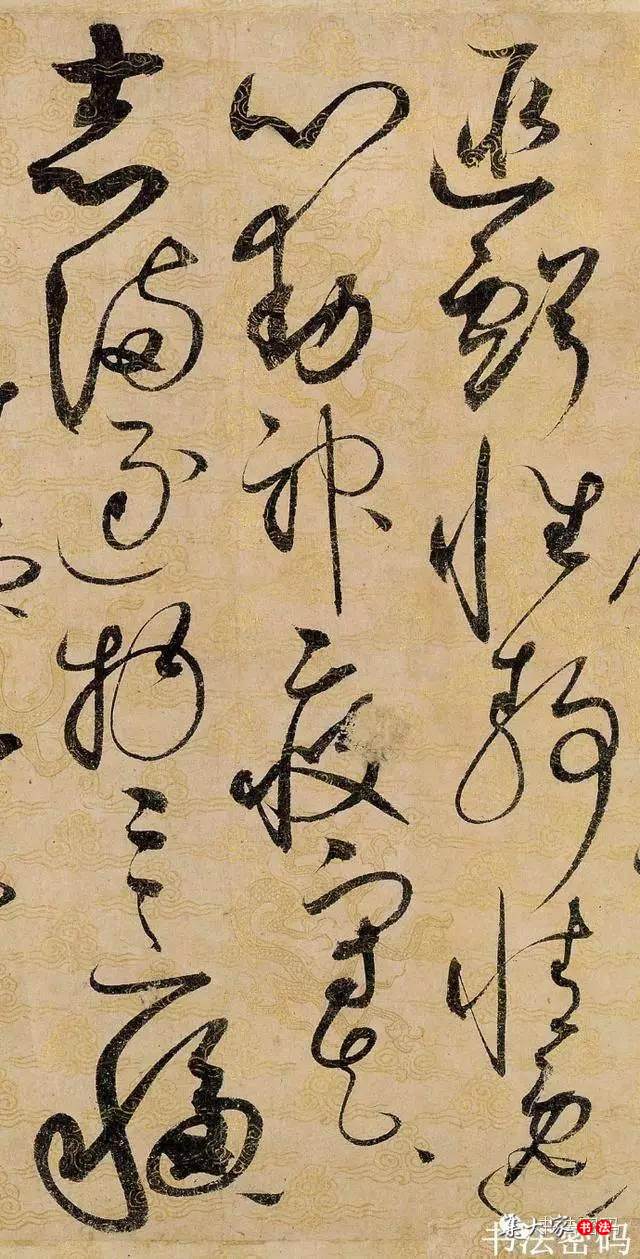 匪虧性靜情逸
心動神疲守真
志滿逐物意移
集大家 书法
书法密码